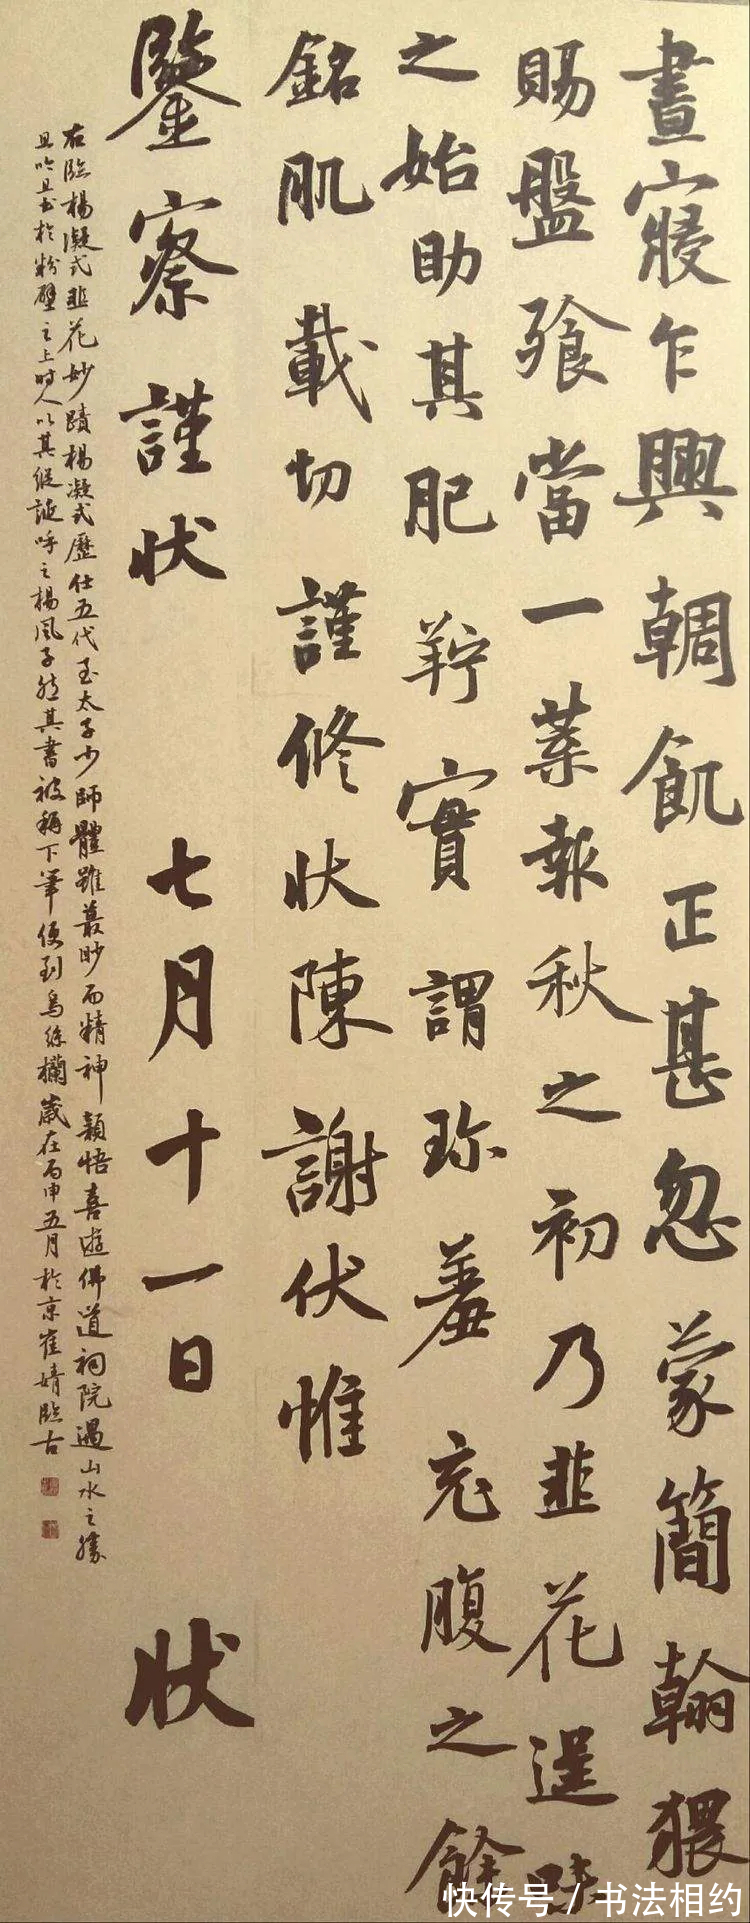 晝寢乍興朝飢正甚忽蒙簡翰猥
賜盤飧當一葉報秋之初乃韭花逞味
之始助其肥羜實謂珍羞充腹之餘
銘肌載切謹修狀陳謝伏惟
鑒察謹狀 七月十一日 狀
右臨楊凝式韭花妙蹟楊凝式歷仕五代至太子少師體雖蕞眇而精神穎悟喜遊佛道祠院遇山水之勝
且吟且書於粉壁之上時人以其縱誕呼之楊風子然其書被稱下筆便到烏絲欄歲在丙申五月於京崔婧臨古
快传号 / 书法相约